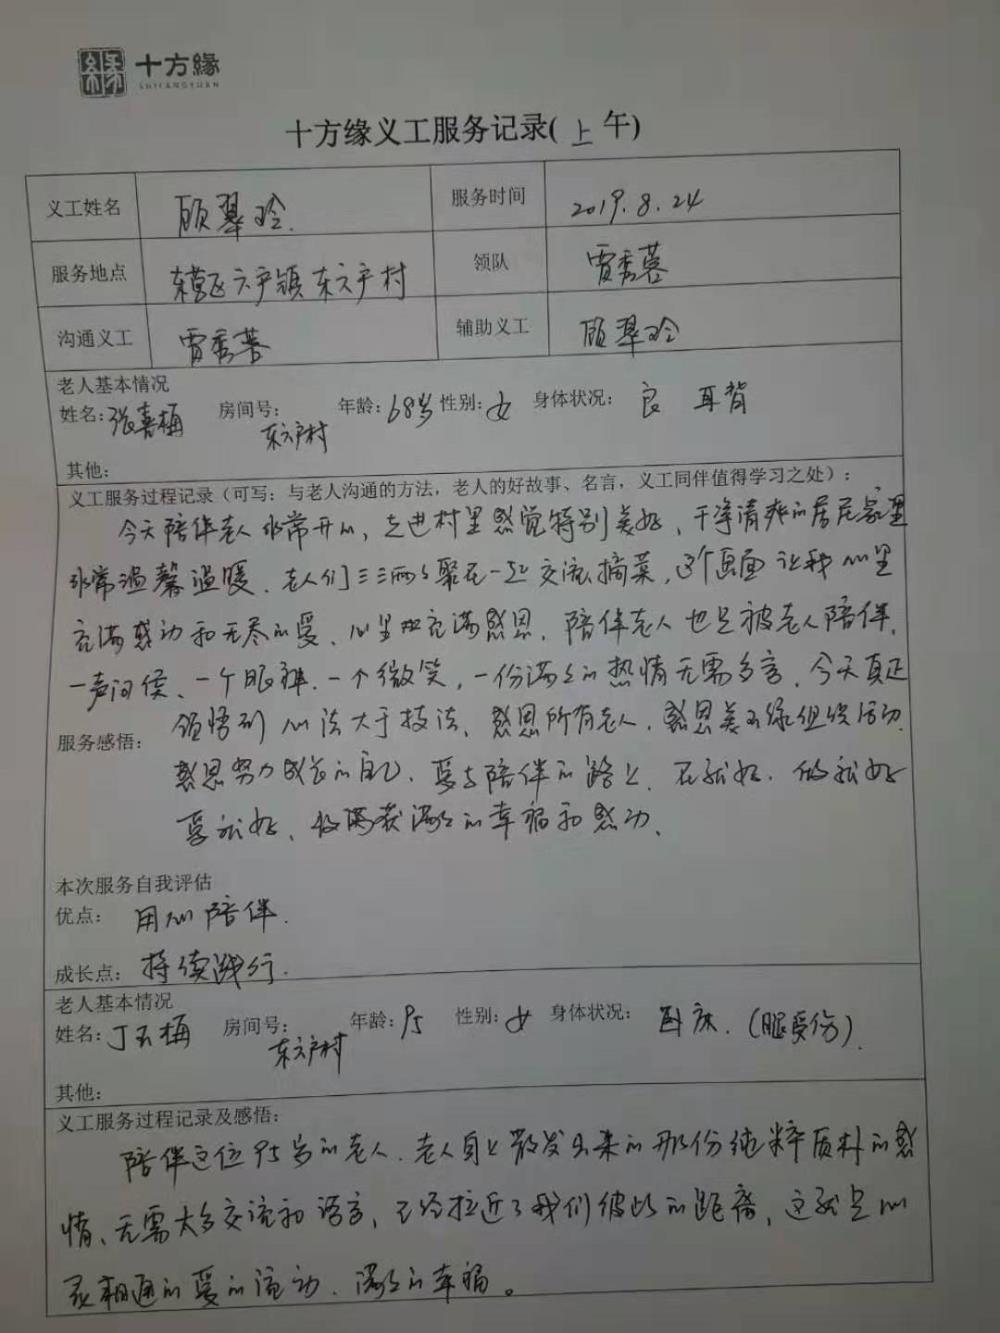 十方緣
SHIFANGYUAN
十方缘义工服务记录(上午)
义工姓名 顾翠玲 服务时间 2019.8.24
服务地点 东营区六户镇东六户村 领队 贾秀蓉
沟通义工 贾秀蓉 辅助义工 顾翠玲
老人基本情况
姓名:张喜梅 房间号:东六户村 年龄:68岁 性别:女 身体状况:良 耳背
其他:
义工服务过程记录(可写:与老人沟通的方法,老人的好故事、名言,义工同伴值得学习之处):
今天陪伴老人非常开心,走进村里感觉特别美好,干净清爽的居民家里
非常温馨温暖、老人们三三两两聚在一起交流摘菜,这个画面让我心里
充满感动和无尽的爱、心里也充满感恩、陪伴老人也是被老人陪伴、
一声问侯、一个眼神、一个微笑,一份满满的热情无需多言、今天真正
领悟到心法大于技法、感恩所有老人,感恩组织活动
服务感悟:
感恩努力成长的自己、爱与陪伴的路上、在就好、做就好
爱就好、收获满满的幸福和感动、
本次服务自我评估
优点: 用心陪伴.
成长点: 持续践行.
老人基本情况
姓名:丁玉梅 房间号:东六户村 年龄:95 性别:女 身体状况: 卧床.(腿受伤).
其他:
义工服务过程记录及感悟:
陪伴这位95岁的老人、老人身上散发出来的那份纯粹质朴的感
情、无需太多交流和语言,已经拉近了我们彼此的距离,这就是心
灵相通的爱的流动、满满的幸福。